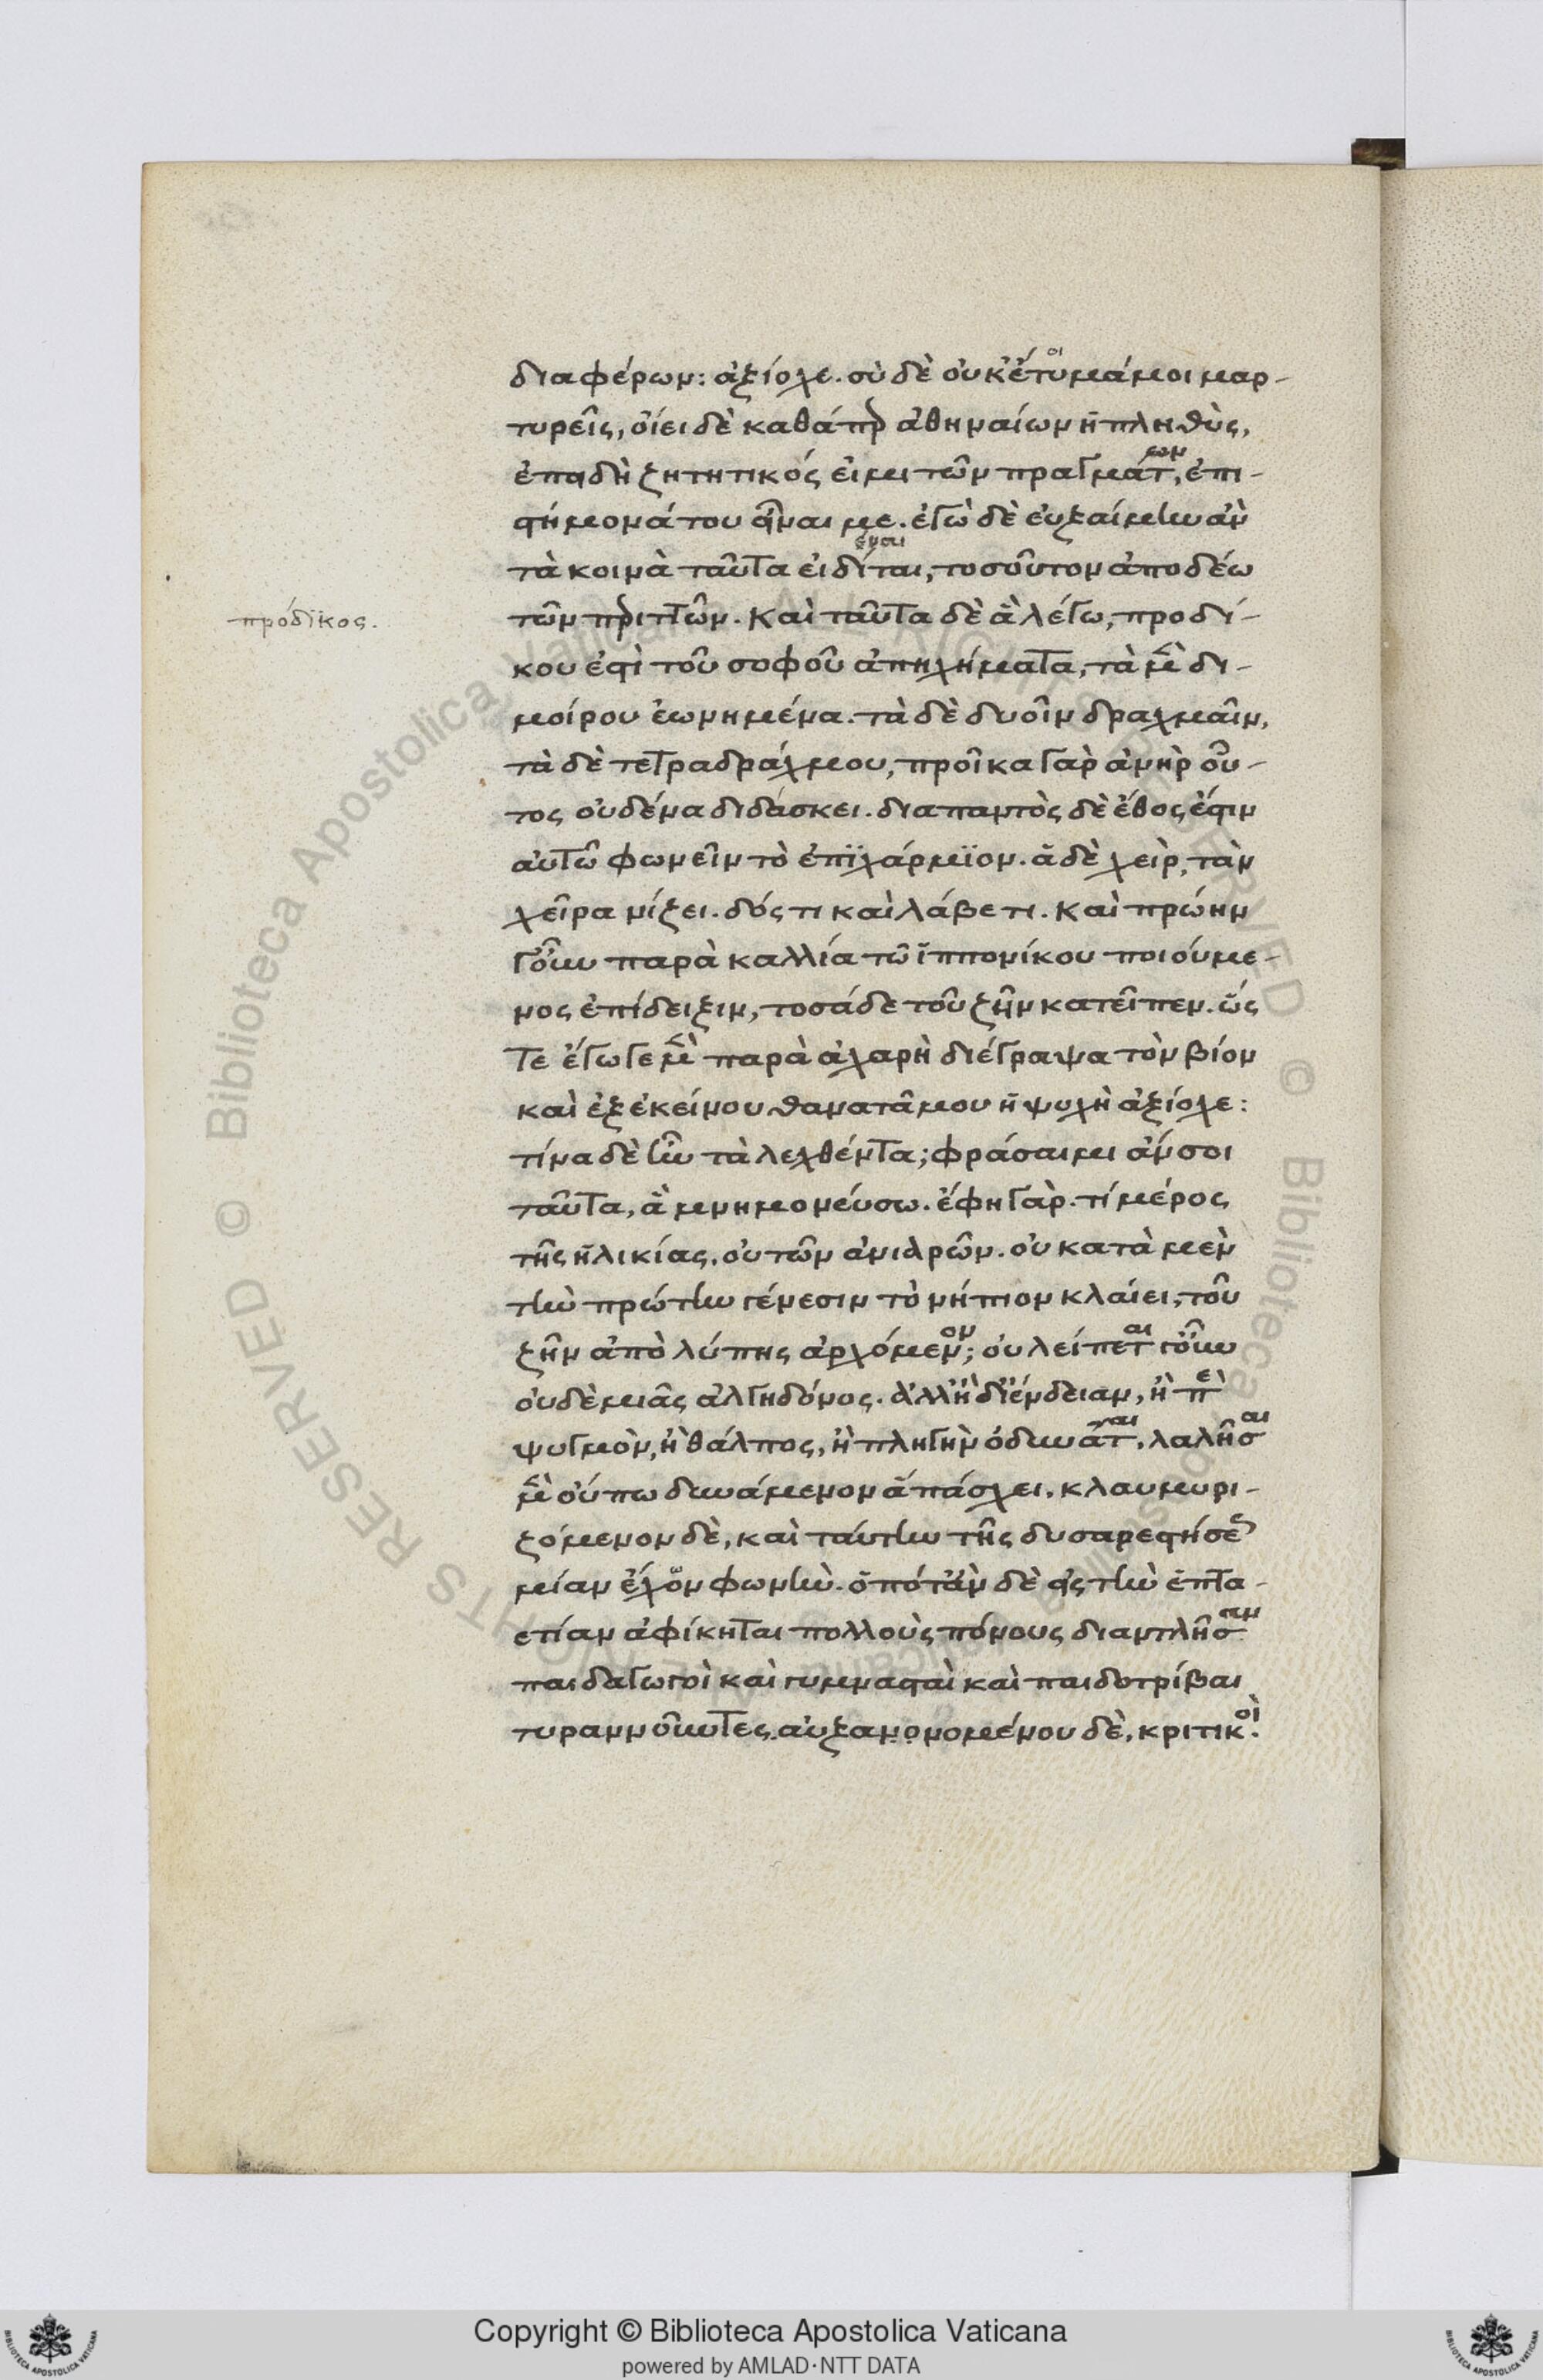 διαφέρων: ἀξίοχε. σὺ δὲ οὐκ ἔτυμά μοι μαρ-
τυρεῖς, οἴει δὲ καθάπερ ἀθηναίων ἡ πληθὺς,
ἐπειδὴ ζητητικός εἰμι τῶν πραγμάτων, ἐπι-
στήμονά του εἶναι με. ἐγὼ δὲ εὐξαίμην ἂν
τὰ κοινὰ ταῦτα εἰδέναι, τοσοῦτον ἀποδέω
πρόδικος.
τῶν περιττῶν. Καὶ ταῦτα δὲ ἃ λέγω, προδί-
κου ἐστὶ τοῦ σοφοῦ ἀπηχήματα, τὰ μὲν δι-
μοίρου ἐωνημένα. τὰ δὲ δυοῖν δραχμαῖν,
τὰ δὲ τετραδράχμου, προῖκα γὰρ ἀνὴρ οὗ-
τος οὐδένα διδάσκει. διαπαντὸς δὲ ἔθος ἐστὶν
αὐτῶ φωνεῖν τὸ ἐπιχάρμϊον. ἁ δὲ χεὶρ, τὰν
χεῖρα νίζει. δός τι καὶ λάβε τι. Καὶ πρώην
γοῦν παρὰ καλλία τῶ ἱππονίκου ποιούμε-
νος ἐπίδειξιν, τοσάδε τοῦ ζῆν κατεῖπεν. ὥς
τε ἔγωγε μὲν παρὰ ἀχαρὴ διέγραψα τὸν βίον
καὶ ἐξ ἐκείνου θανατᾶ μου ἡ ψυχὴ ἀξίοχε:
τίνα δὲ ἦν τὰ λεχθέντα; φράσαιμι ἄν σοι
ταῦτα, ἃ μνημονεύσω. ἔφη γὰρ. τί μέρος
τῆς ἡλικίας, οὐ τῶν ἀνιαρῶν. οὐ κατὰ μὲν
τὴν πρώτην γένεσιν τὸ νήπιον κλαίει, τοῦ
ζῆν ἀπὸ λύπης ἀρχόμενον; οὐ λείπεται γοῦν
οὐδὲ μιᾶς ἀλγηδόνος. ἀλλ' ἢ δι' ἔνδειαν, ἢ περὶ
ψυγμὸν, ἢ θάλπος, ἢ πληγὴν ὀδυνᾶται, λαλῆσαι
μὲν οὔπω δυνάμενον ἃ πάσχει, κλαυμυρι-
ζόμενον δὲ, καὶ ταύτην τῆς δυσαρεστήσεως
μείαν ἔχον φωνὴν. ὁπόταν δὲ εἰς τὴν ἑπτα-
ετίαν ἀφίκηται πολλοὺς πόνους διαντλῆσαν
παιδαγωγοὶ καὶ γυμνασταὶ καὶ παιδοτρίβαι
τυραννοῦντες. αὐξανονομένου δὲ, κριτικοὶ.
Copyright © Biblioteca Apostolica Vaticana
powered by AMLAD·NTT DATA